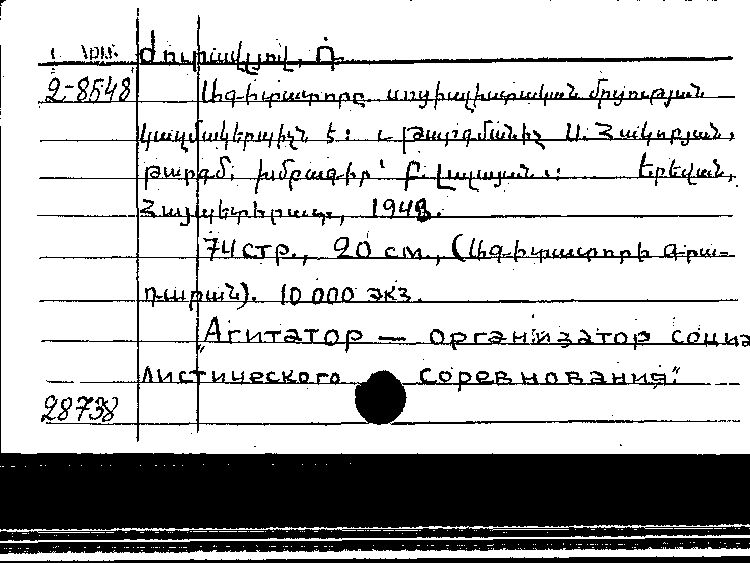 Ժուրավլյով, Ռ.
2-8548 Ագիտատորը սոցիալիստական մրցության
կազմակերպիչն է: Թարգմանիչ Ս. Հակոբյան,
թարգմ. խմբագիր՝ Բ. Լալայան: Երեվան,
Հայպետհրատ, 1948.
74 стр., 20 см., (Ագիտատորի գրա-
դարան). 10 000 экз.
"Агитатор — организатор социа
листического соревнования".
28738